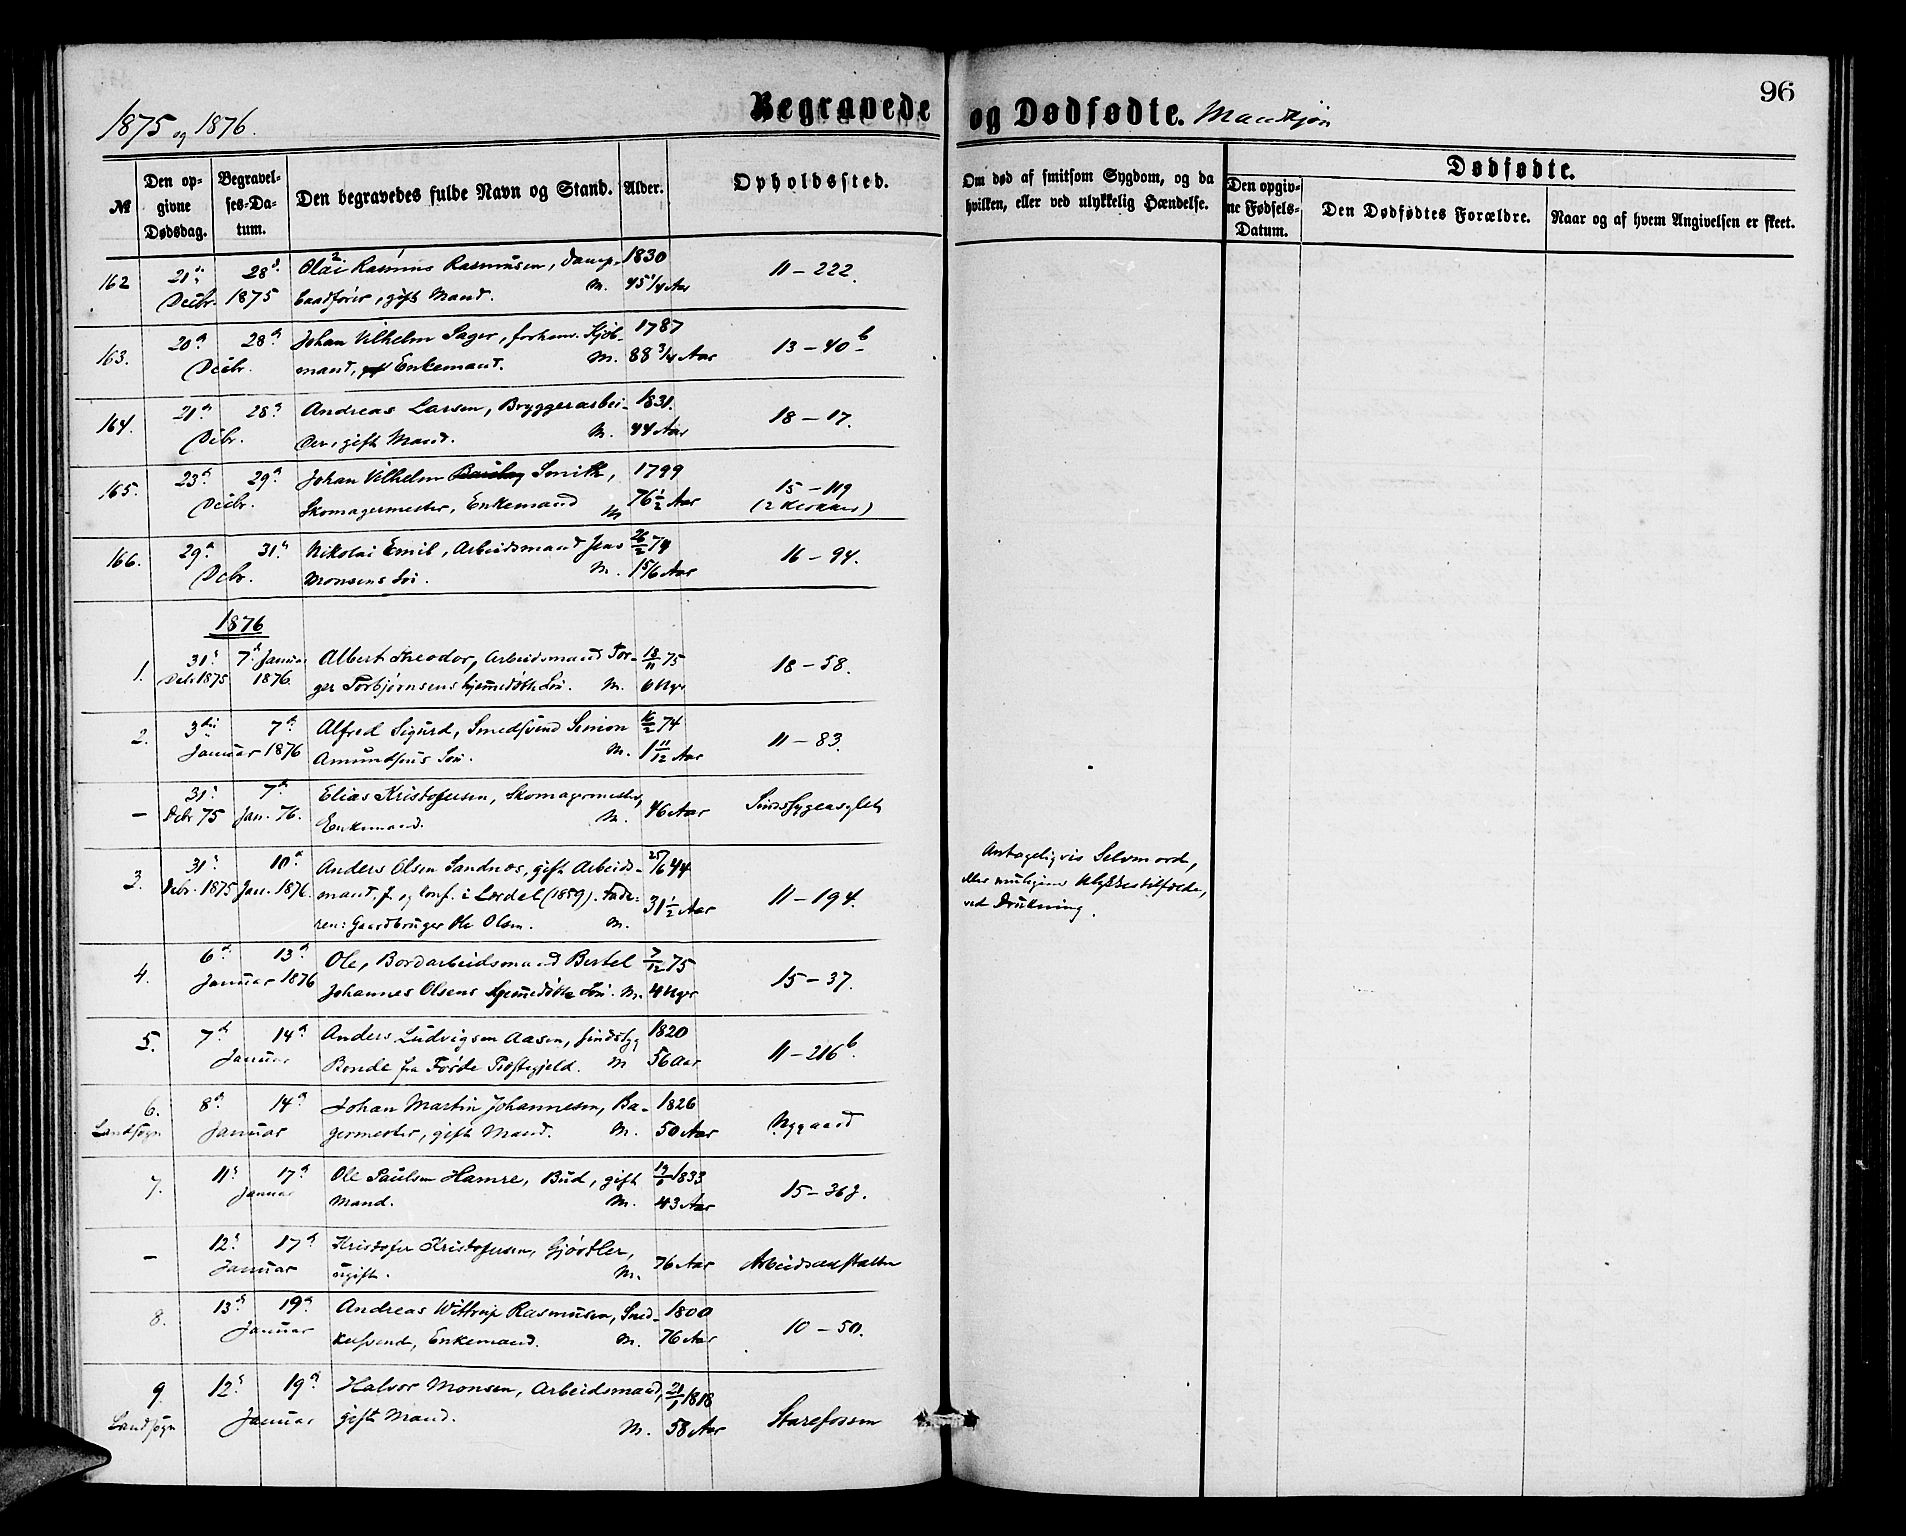 96
1875 og 1876.
Begravede og Dødfødte. Mandkjøn
№
Den opgivne Dødsdag.
Begravelses-Datum.
Den begravedes fulde Navn og Stand.
Alder.
Opholdssted.
Om død af smitsom Sygdom, og da
hvilken, eller ved ulykkelig Hændelse.
Dødfødte.
Den opgivne Fødsels-Datum.
Den Dødfødtes Forældre.
Naar og af hvem Angivelsen er skeet.
162 21de 28de Olai Rasmus Rasmusen, Damp- 1830 11 – 222.
Decbr. 1875 baadfører, gift Mand. M. 45 1/4 Aar
163. 20de 28de Johan Vilhelm Sager, forhenv. Kjøb- 1787 13 – 40 b
Decbr. mand, Enkemand. M. 88 3/4 Aar
164. 21de 28de Andreas Larsen, Bryggerarbei- 1831. 18 – 17.
Decbr. der, gift Mand. M. 44 Aar
165. 23de 29de Johan Vilhelm Smith, 1799 15 – 119
Decbr. Skomagermester, Enkemand M 76 1/2 Aar (2 Klokker)
166. 29de 31te Nikolai Emil, Arbeidsmand Jens 26/2 74 16 – 94.
Decbr. Monsens Søn. M. 1 5/6 Aar
1876
1. 31te 7de Januar Albert Theodor, Arbeidsmand Tor- 18/11 75 18 – 58.
Decbr 1875 1876. ger Torbjørnsens hjemmedøbte Søn. M. 6 Uger
2. 3die 7de Alfred Sigurd, Smedsvend Simon 16/2 74 11 – 83.
Januar 1876 Amundsens Søn. M. 1 11/12 Aar
– 31te 7de Elias Kristofersen, Skomagermester, 46 Aar Sindssygeasylet
Debr 75 Jan. 76. Enkemand. M.
3. 31te 10de Anders Olsen Sandnes, gift Arbeids- 25/6 44 11 – 194.
Debr. 1875 Jan. 1876. mand. f. og konf. i Lerdel (1859). Fade- 31 1/2 Aar
ren: Gaardbruger Ole Olsen. M.
Antageligvis Selvmord,
eller muligens Ulykkestilfælde,
ved Drukning.
4. 6te 13de Ole, Bordarbeidsmand Bertel 7/12 75 15 – 37.
Januar 1876 Johannes Olsens hjemmedøbte Søn. M. 4 Uger
5. 7de 14de Anders Ludvigsen Aasen, sindssyg 1820 11 – 216 b.
Januar Bonde fra Førde Præstegjeld. M 56 Aar
6. 8de 14de Johan Martin Johannesen, Ba- 1826 Nygaard
Landsogn Januar germester, gift Mand. M. 50 Aar
7. 11te 17de Ole Paulsen Hamre, Bud, gift 1833 15 – 36
Januar Mand. M. 43 Aar
– 12te 17de Kristofer Kristofersen, Gjørtler, 76 Aar Arbeidsanstalten
Januar ugift. M.
8. 13de 19de Andreas Wittrup Rasmusen, Sned- 1800 10 – 50.
Januar kersvend, Enkemand. M. 76 Aar
9. 12te 19de Halvor Monsen, Arbeidsmand, 21/1 1818 Starefossen
Landsogn Januar gift Mand. M. 58 Aar